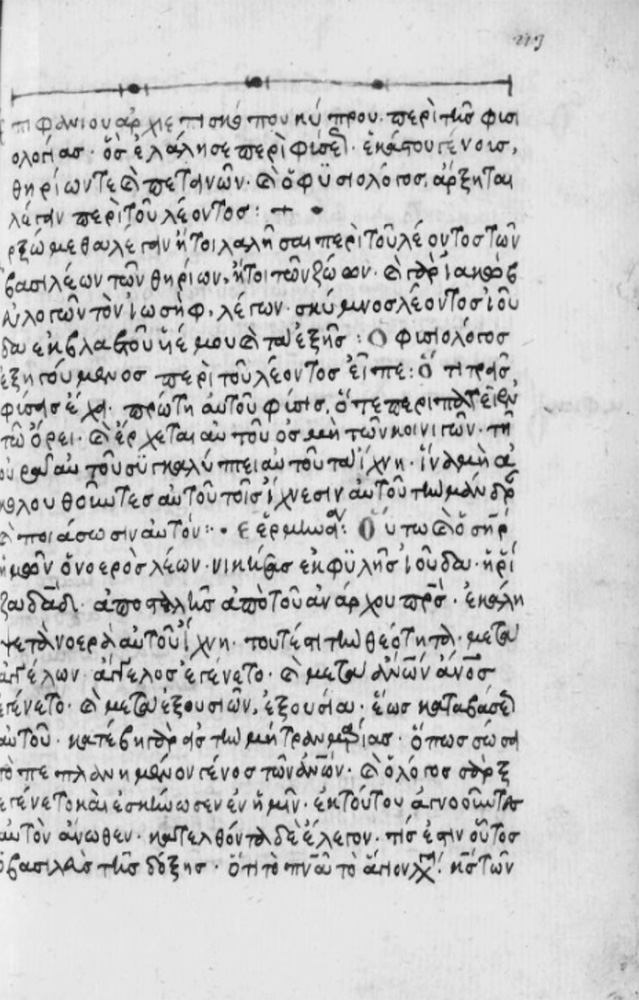 πιφανίου ἀρχιεπισκόπου κύπρου. περὶ τῆς φυσι
ολογίας· ὃς ἐλάλησε περὶ φύσε ἑκάστου γένους,
θηρίων τε καὶ πετεινῶν· καὶ ὁ φυσιολόγος, ἄρξηται
λέγειν περὶ τοῦ λέοντος: +
ρξώμεθα λέγειν ἤτοι λαλῆσαι περὶ τοῦ λέοντος τῶν
βασιλέων τῶν θηρίων, ἤτοι τῶν ζώων· καὶ γὰρ ἰακὼβ
εὐλογῶν τὸν ἰωσὴφ, λέγων· σκύμνος λέοντος ἰού
δα ἐκ βλαστοῦ υἱέ μου καὶ τὰ ἑξῆς: Ὁ φισιολόγος
ἐξηγούμενος περὶ τοῦ λέοντος εἶπε: ὅτι τρεῖς
φύσεις ἔχει· πρώτη αὐτοῦ φύσις, ὅτε περιπατεῖ ἐν
τῶ ὄρει· καὶ ἔρχεται αὐτοῦ ὀσμὴ τῶν κοινιγῶν· τῆ
οὐρᾶ αὐτοῦ συγκαλύπτει αὐτοῦ τὰ ἴχνη· ἵνα μὴ ἀ
κολουθοῦντες αὐτοῦ τοῖς ἴχνεσιν αὐτοῦ τὴν μάνδρ
καὶ ποιάσωσιν αὐτόν: · ἑρμηνεία: Οὕτω καὶ ὁ σηρ
ἡμῶν ὁ νοερὸς λέων· νικήσας ἐκ φυλῆς ἰούδα· ἡ ῥί
ζα δαδ· ἀποσταλεὶς ἀπὸ τοῦ ἀνάρχου πρς· ἐκάλυ
ψε τὰ νοερὰ αὐτοῦ ἴχνη· τουτέστι τὴν θεότητα· μετὰ
ἀγγέλων ἄγγελος ἐγένετο· καὶ μετὰ ἀνων ἀνος
ἐγένετο· καὶ μετὰ ἐξουσιῶν, ἐξουσία· ἕως καταβάσε
αὐτοῦ· κατέβη γὰρ εἰς τὴν μήτραν μαρίας· ὅπως σώση
τὸ πεπλανημένον γένος τῶν ἀνων· καὶ ὁ λόγος σὰρξ
ἐγένετο καὶ ἐσκήνωσεν ἐν ἡμῖν· ἐκ τούτου ἀγνοοῦντες
αὐτὸν ἄνωθεν· κατελθόντα δὲ ἔλεγον· τίς ἐστιν οὗτος
ὁ βασιλεὺς τῆς δόξης· ὅτι τὸ πνα τὸ ἅγιον